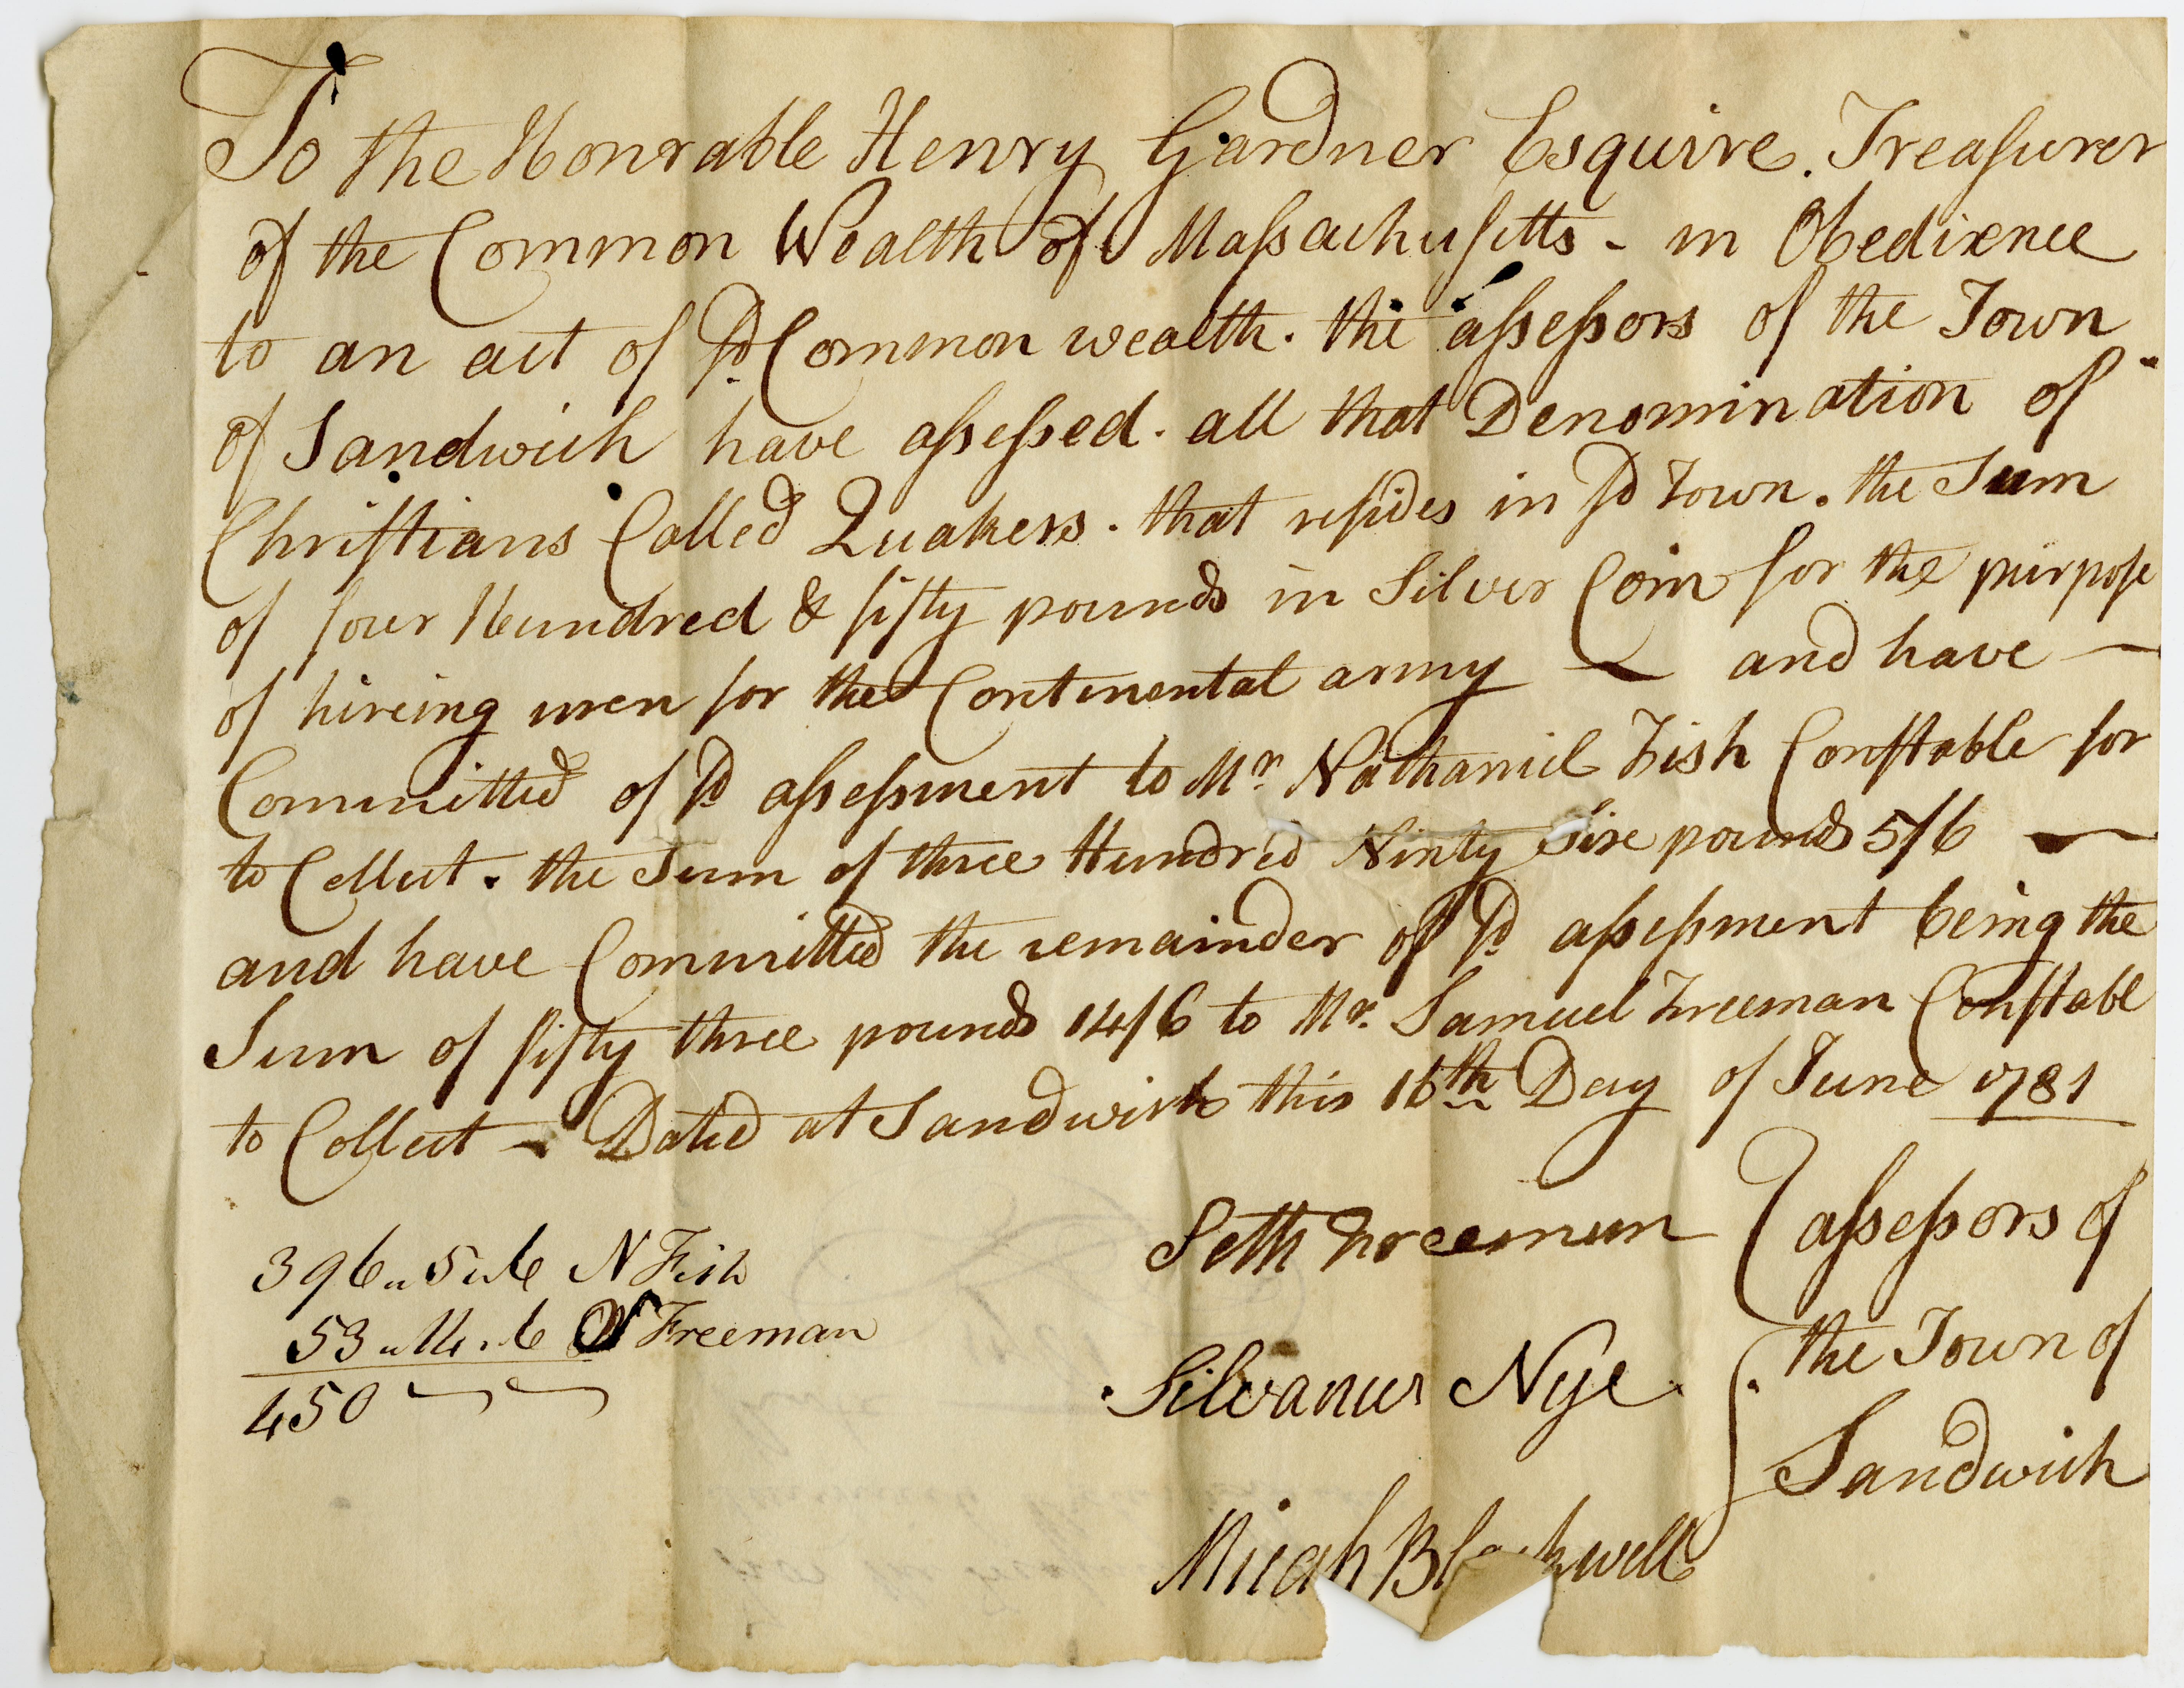 To the Honrable Henry Gardner Esquire. Treasurer
of the Common Wealth of Massachusitts - in Obedience
to an act of sd Common wealth. the assessors of the Town
of Sandwich have assessed. all that Denomination of
Christians Called Quakers. that resides in sd Town. the Sum
of four Hundred & fifty pounds in Silver Coin for the purpose
of hireing men for the Continental army — and have —
Committed of sd assessment to Mr. Nathaniel Fish Constable for
to Collect. the Sum of three Hundred Ninty Six pounds 5/6 —
and have Committed the remainder of sd assessment being the
Sum of fifty three pounds 14/6 to Mr. Samuel Freeman Constabl
to Collect - Dated at Sandwich this 16th Day of June 1781
Seth Freeman assessors of
396 " 5 " 6 N Fish
53 " 14 " 6 Freeman
450 — —
Silvanus Nye the Town of
Sandwich
Micah Blackwell